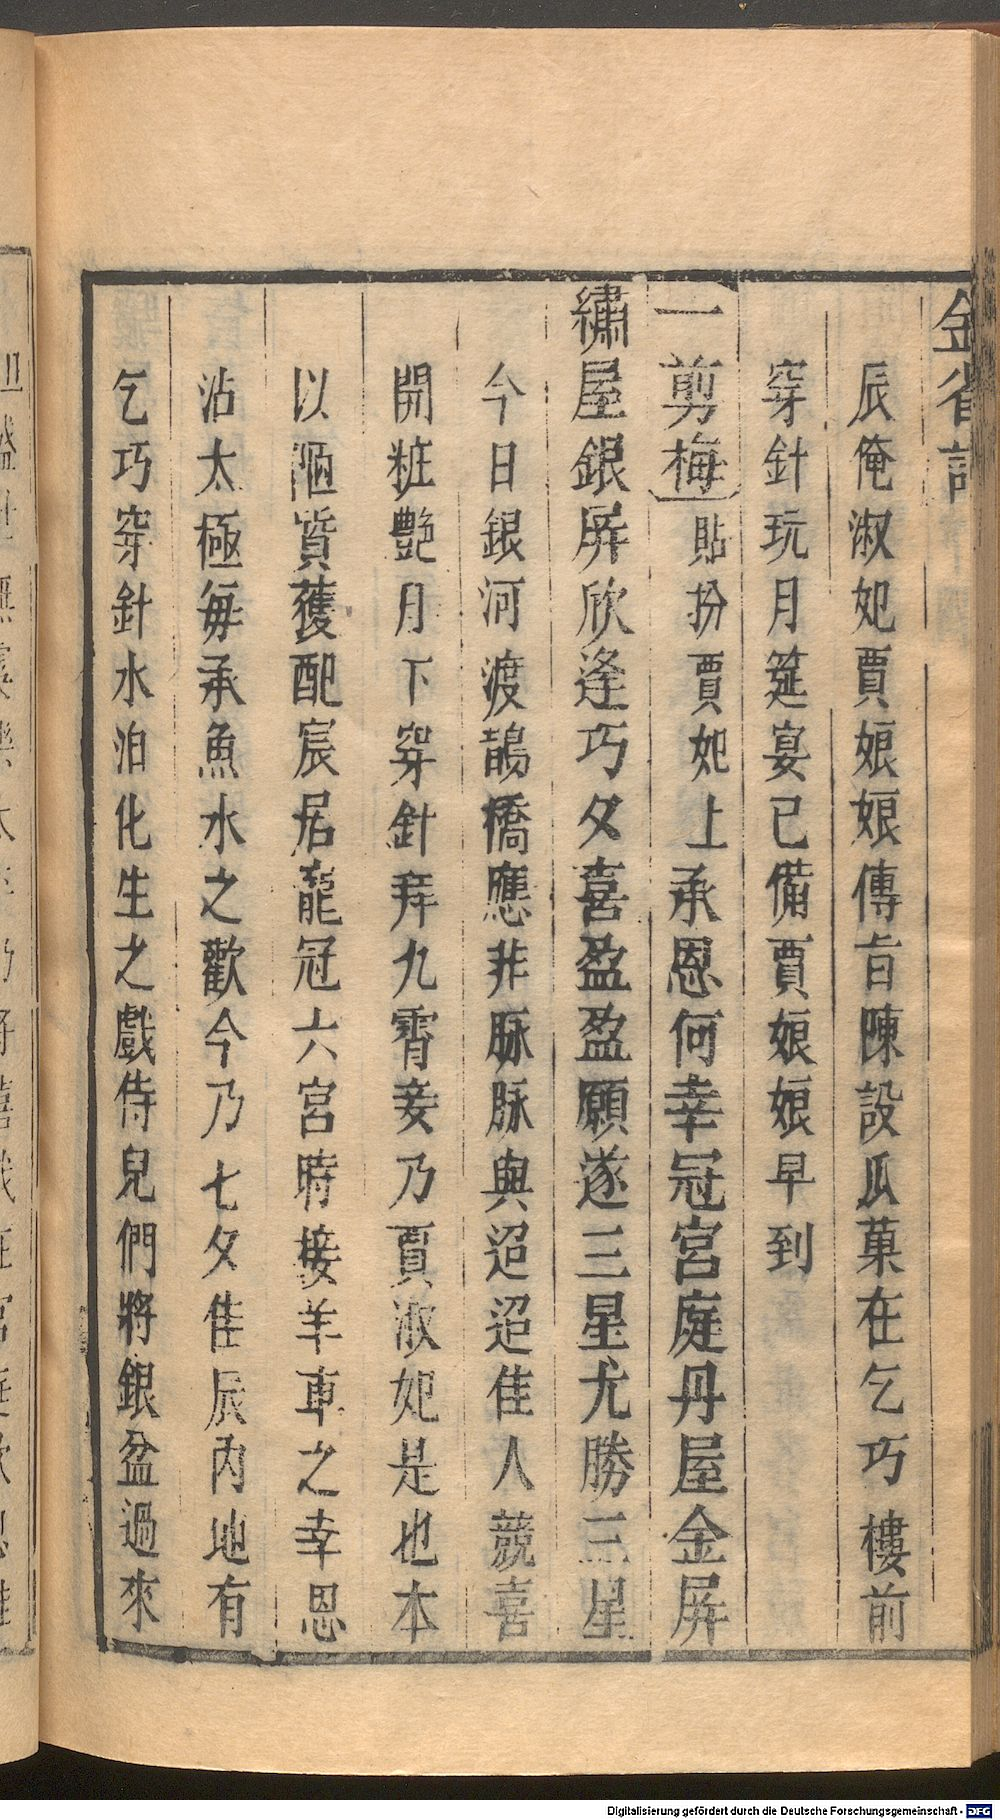 金雀記
辰俺淑妃賈娘娘傳旨陳設瓜菓在乞巧樓前
穿針玩月筵宴已備賈娘娘早到
一剪梅 貼扮賈妃上 承恩何幸冠宮庭丹屋金屏
繡屋銀屏欣逢巧夕喜盈盈願遂三星尤勝三星
今日銀河渡鵲橋應非脉脉與迢迢佳人競喜
開粧艶月下穿針拜九霄妾乃賈淑妃是也本
以陋質獲配宸居寵冠六宮時接羊車之幸恩
沾太極每承魚水之歡今乃七夕佳辰內地有
乞巧穿針水泊化生之戲侍兒們將銀盆過來
Digitalisierung gefördert durch die Deutsche Forschungsgemeinschaft - DFG